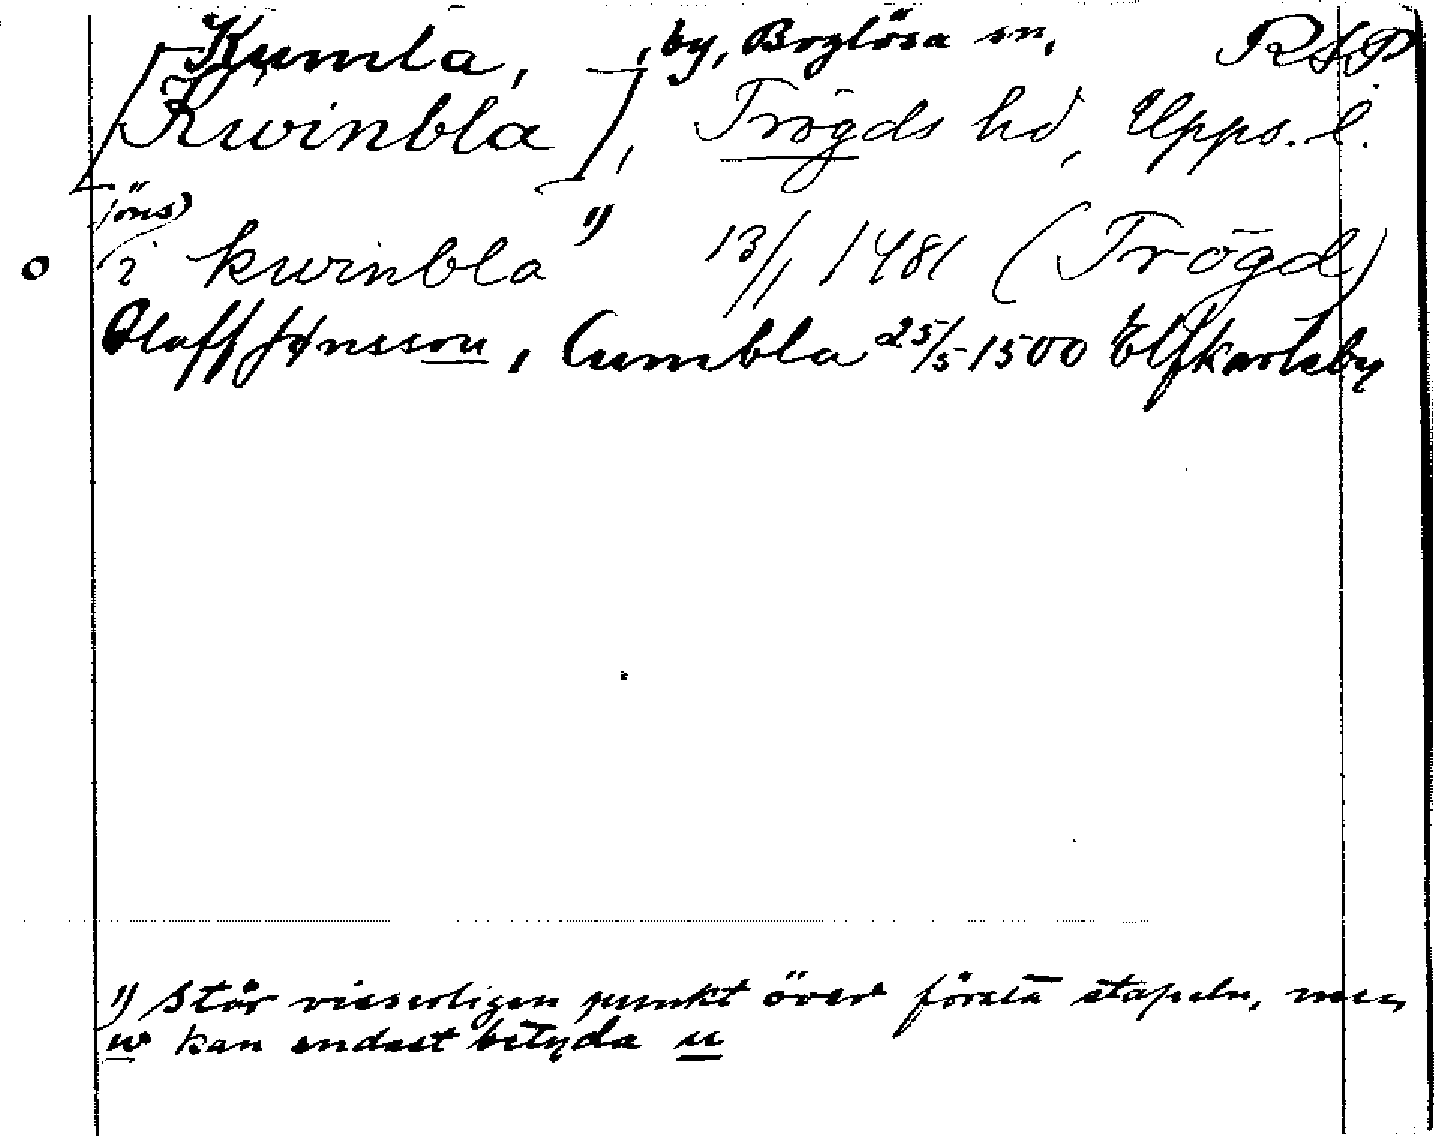 Kumla, , by, Boglösa sn, RAP
[Kwinbla], Trögds hd, Upps. l.
jöns)
o i kwinbla 1) 13/1 1481 (Trögd)
Olaff Jønsson, Cumbla 25/5 1500 Elfkarleby
1) Står visserligen punkt över första stapeln, men
w kan endast betyda u